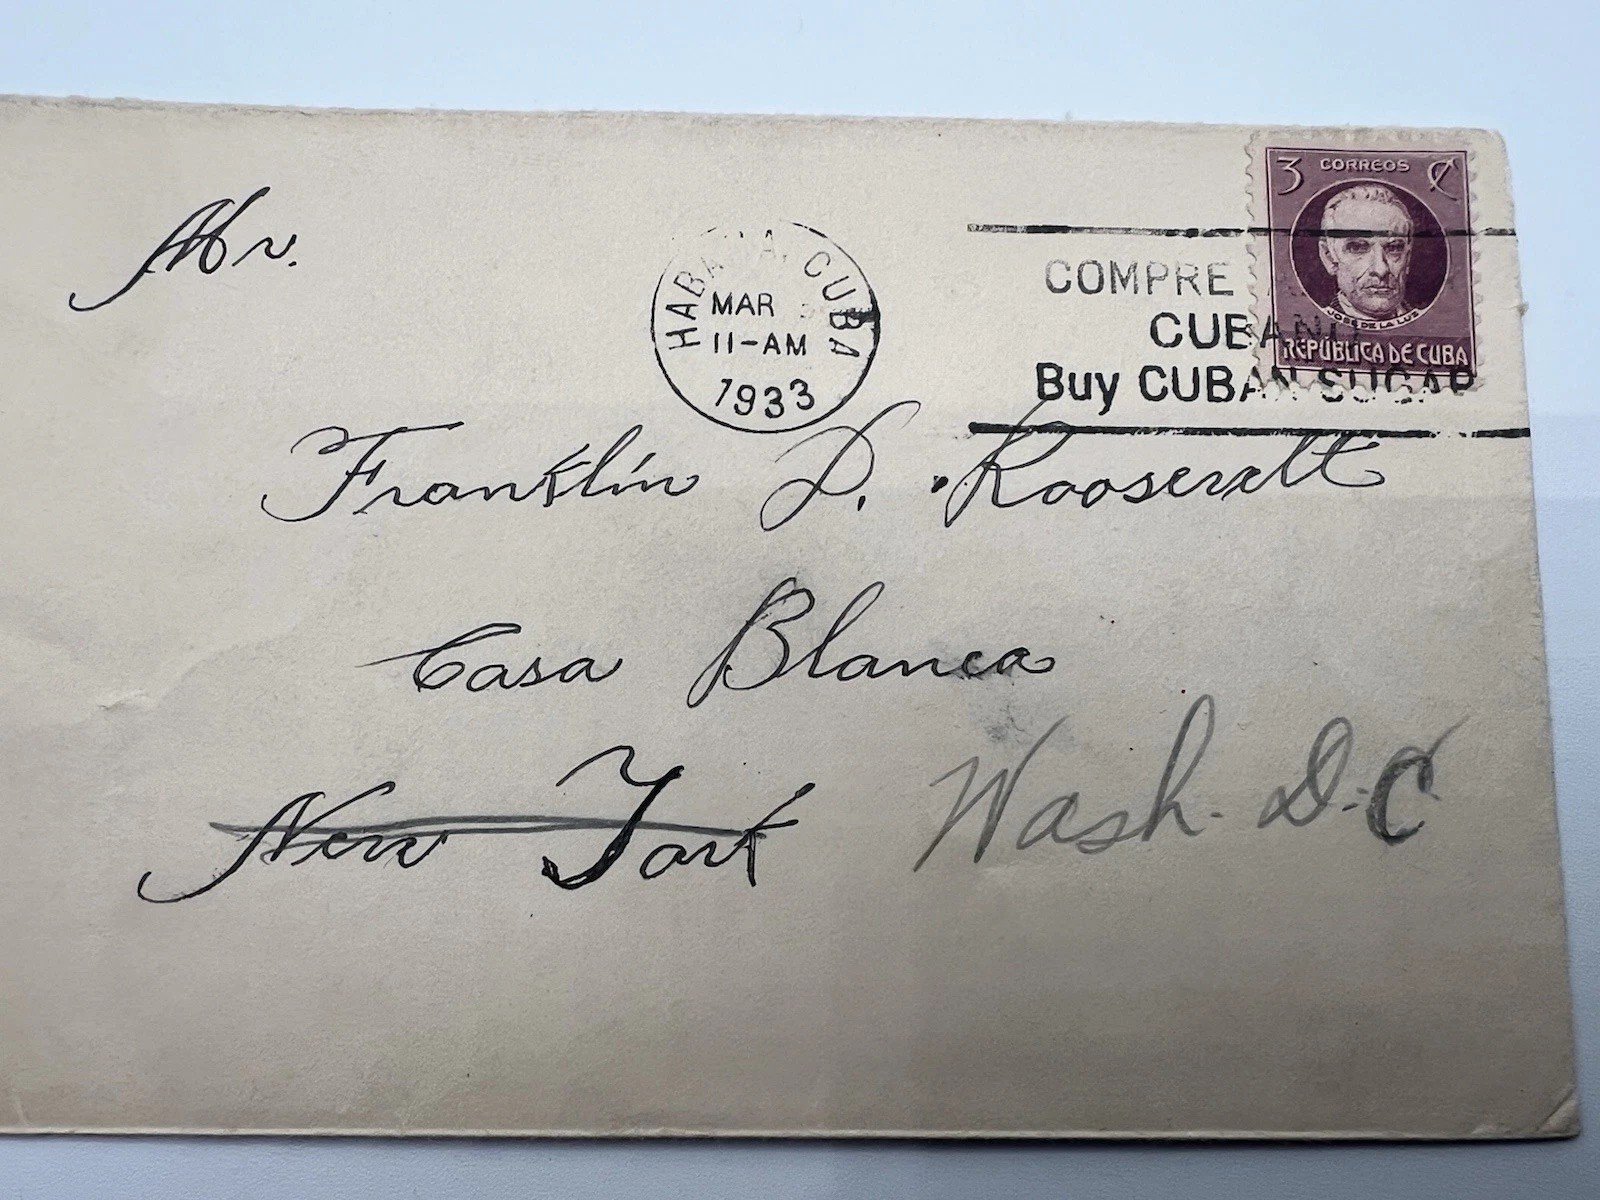 Mr.
HABANA, CUBA
MAR
11-AM
1933
COMPRE
CUBANO
Buy CUBAN SUGAR
3 CORREOS ₵
JOSÉ DE LA LUZ
REPÚBLICA DE CUBA
Franklin D. Roosevelt
Casa Blanca
New York Wash. D.C